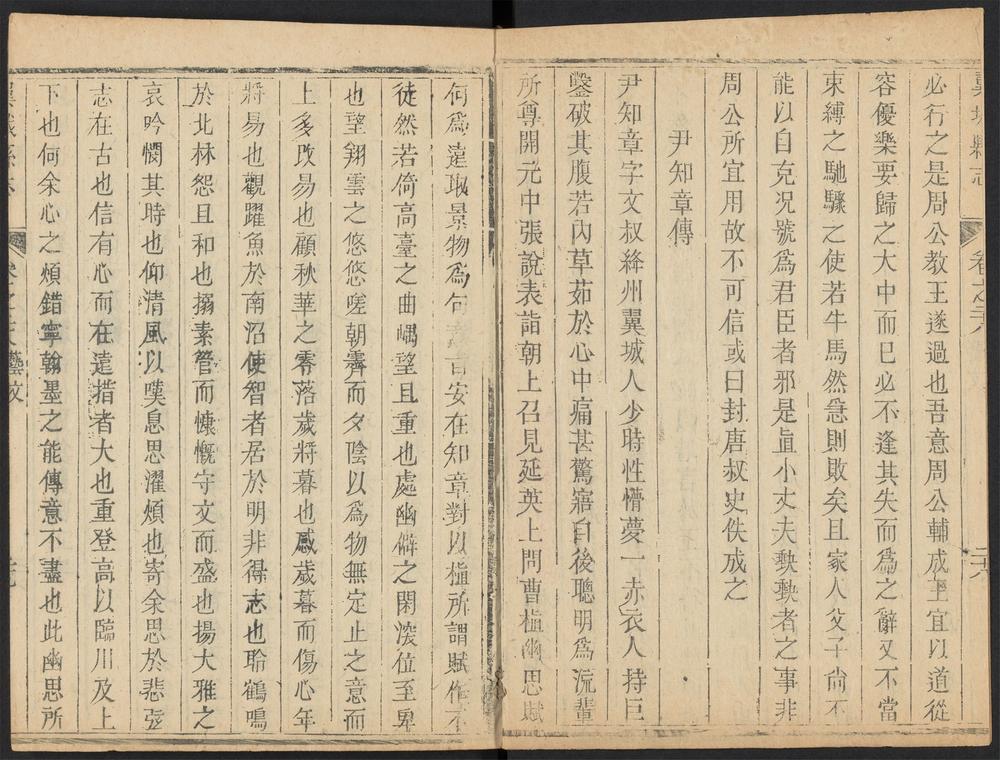 翼城縣志
卷之二十八
二十八
必行之是周公教王遂過也吾意周公輔成王宜以道從
容優樂要歸之大中而已必不逢其失而爲之辭又不當
束縛之馳驟之使若牛馬然急則敗矣且家人父子尚不
能以自克况號爲君臣者邪是直小丈夫䡾䡾者之事非
周公所宜用故不可信或曰封唐叔史佚成之
尹知章傳
尹知章字文叔絳州翼城人少時性懵夢一赤衣人持巨
鑿破其腹若內草茹於心中痛甚驚寤自後聰明爲流輩
所尊開元中張說表詣朝上召見延英上問曹植幽思賦
何爲遠取景物爲句意旨安在知章對以植所謂賦作不
徒然若倚高臺之曲嵎望且重也處幽僻之閑深位至卑
也望翔雲之悠悠嗟朝霽而夕陰以爲物無定止之意而
上多改易也顧秋華之零落歲將暮也感歲暮而傷心年
將易也觀躍魚於南沼使智者居於明非得志也聆鶴鳴
於北林怨且和也搦素管而慷慨守文而盛也揚大雅之
哀吟憫其時也仰清風以嘆息思濯煩也寄余思於悲弦
志在古也信有心而在遠措者大也重登高以臨川及上
下也何余心之煩錯寧翰墨之能傳意不盡也此幽思所
卷之二十八 藝文